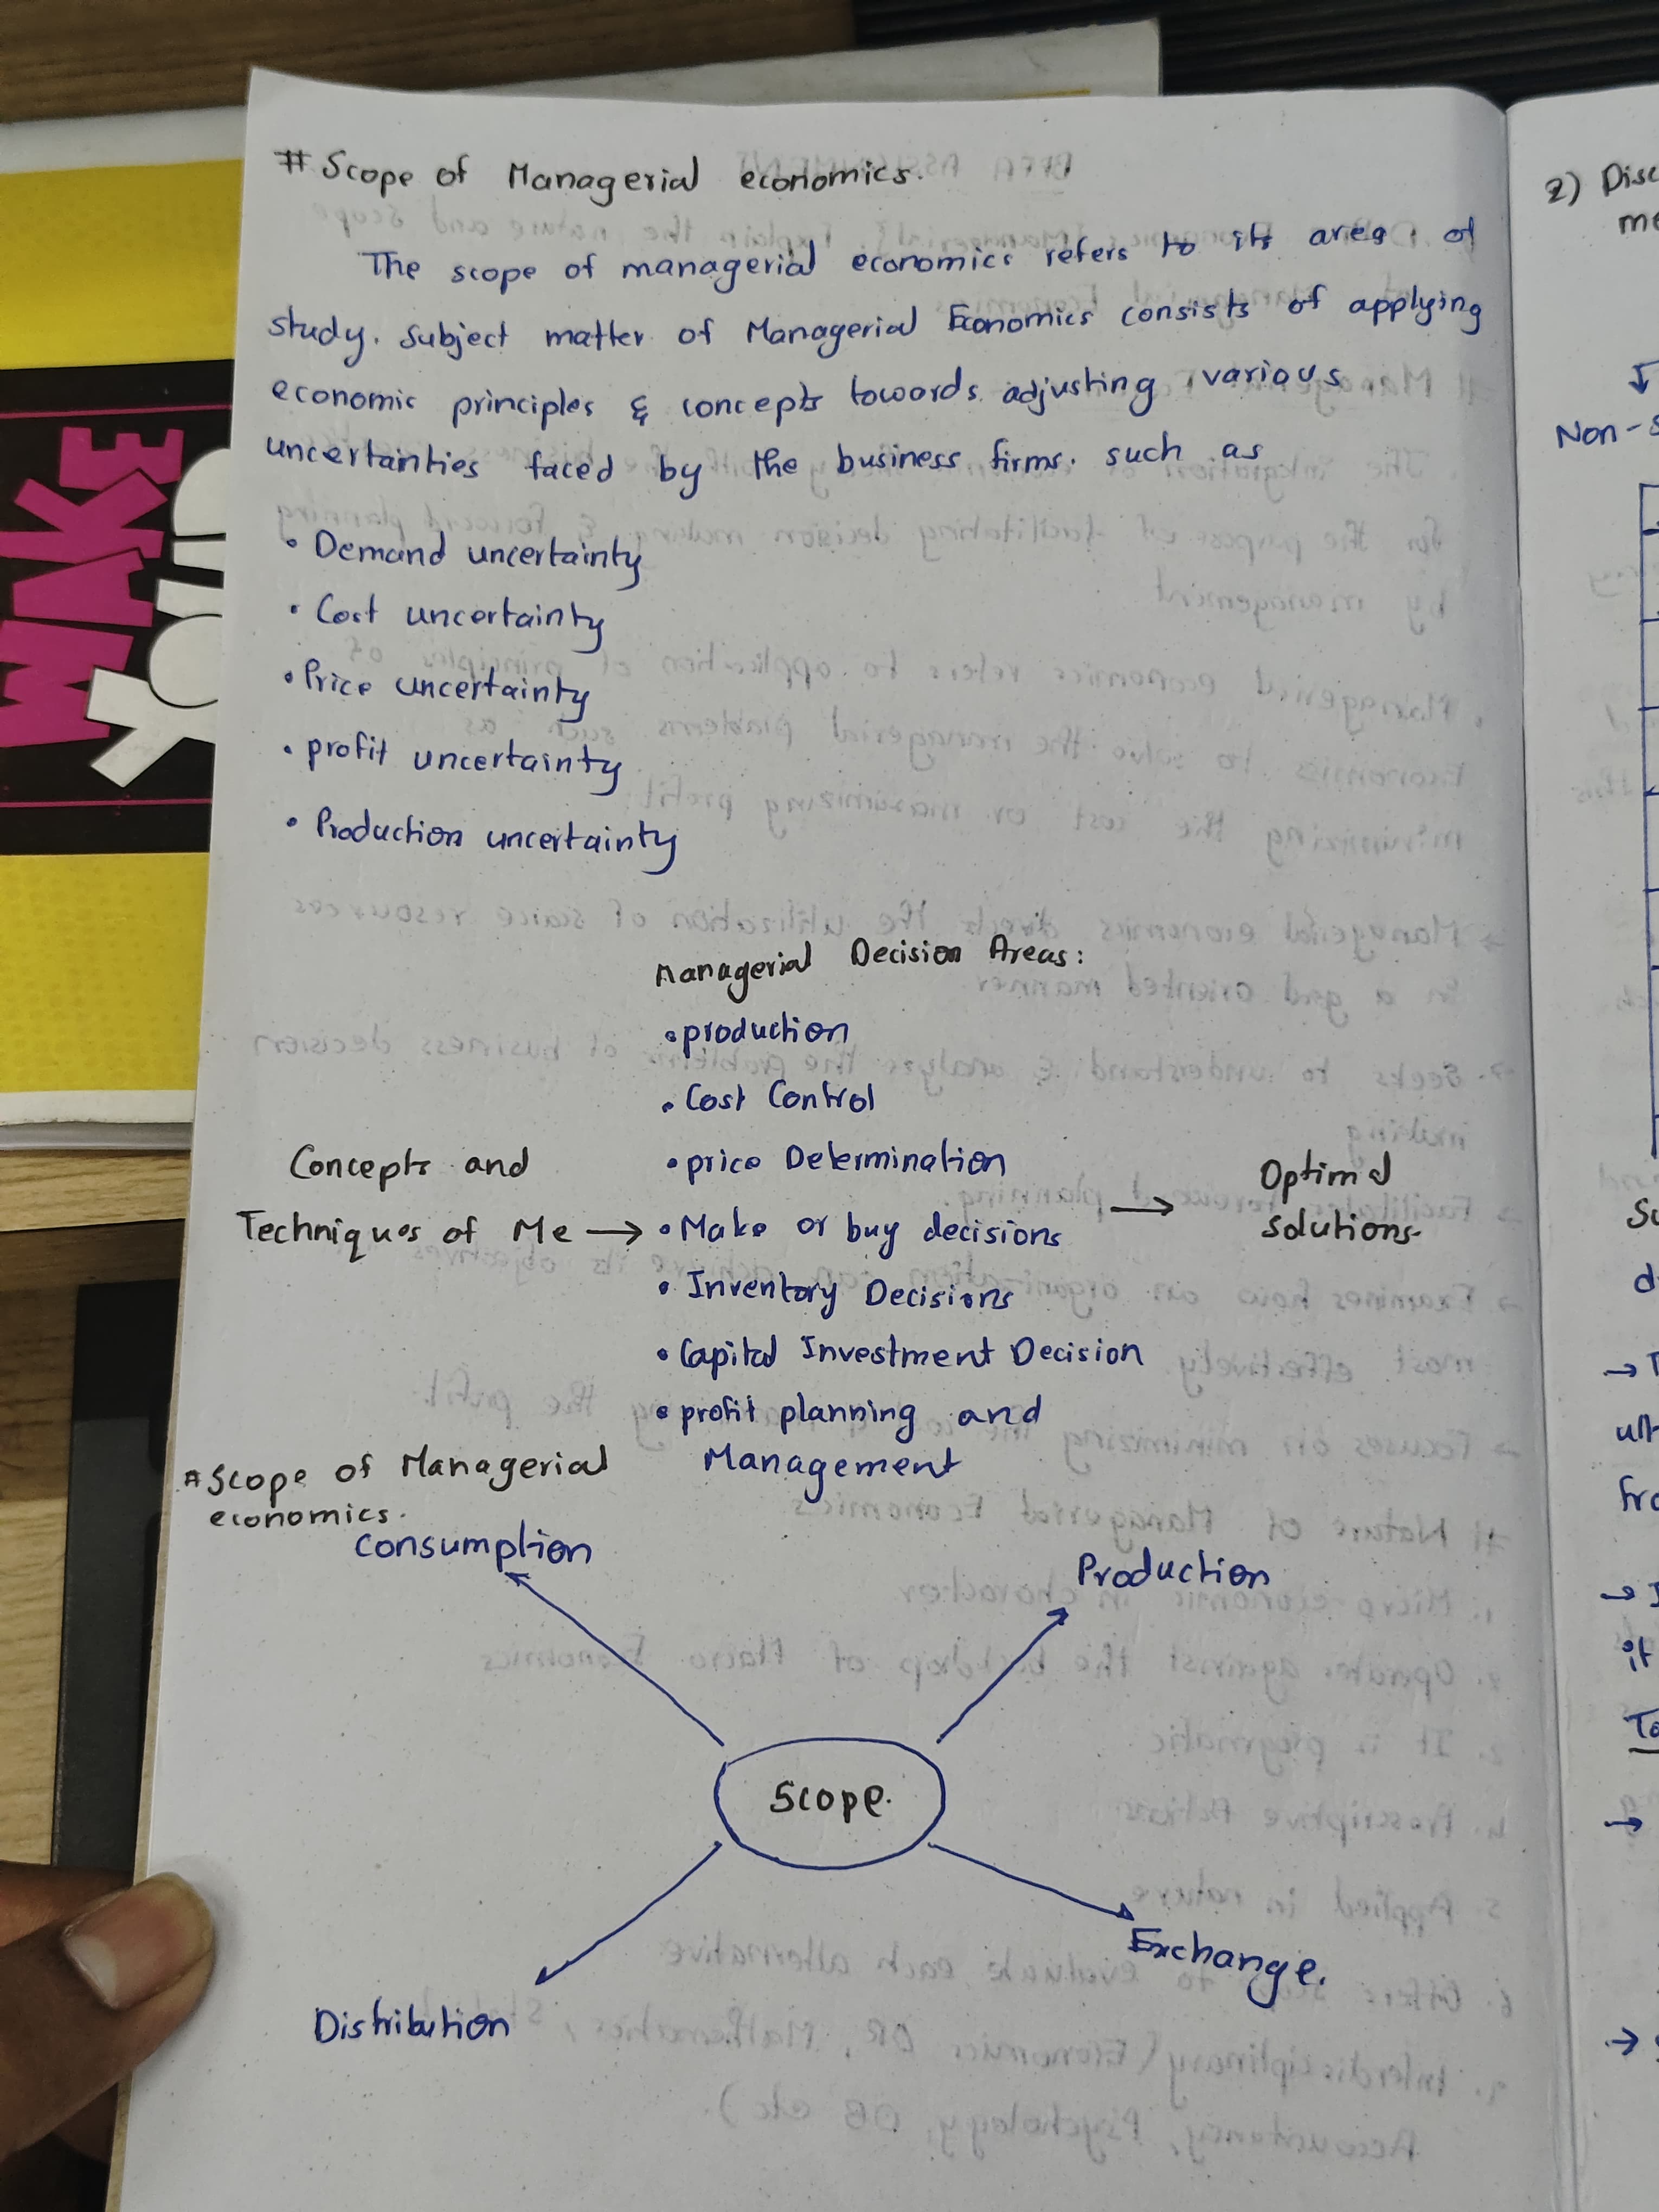 # Scope of Managerial economics.
The scope of managerial economics refers to its area of
study. Subject matter of Managerial Economics consists of applying
economic principles & concepts towords adjusting various
uncertainties faced by the business firms. such as
• Demand uncertainty
• Cost uncertainty
• Price uncertainty
• profit uncertainty
• Production uncertainty
Managerial Decision Areas:
• production
• Cost Control
• price Determination
• Make or buy decisions
• Inventory Decisions
• Capital Investment Decision
• profit planning and
Management
Concepts and
Techniques of Me →
→ Optimal
solutions.
# Scope of Managerial
economics.
Consumption
Production
Scope.
Exchange.
Distribution
2) Disc
me
Non-S
MAKE